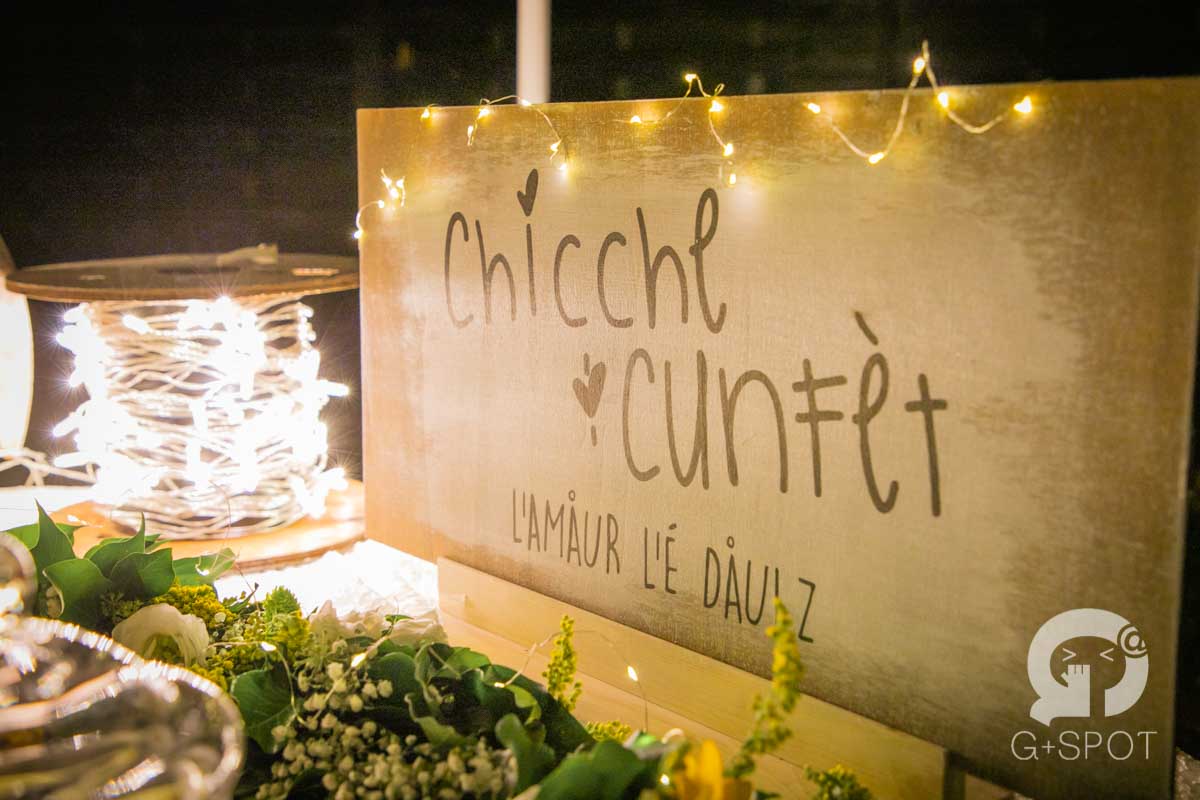 chicche
cunfèt
L'AMÅUR L'É DÅULZ
@
G+SPOT